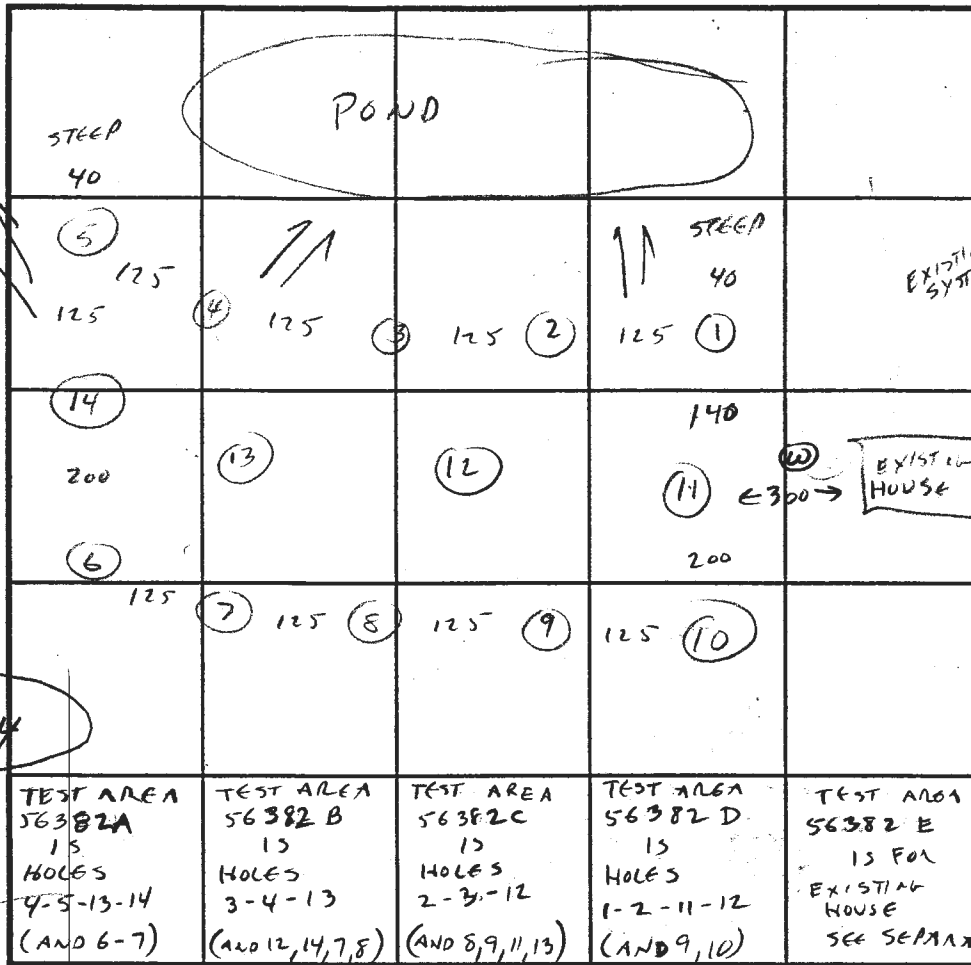 POND
STEEP
40
5
125
125
4
125
3
125
2
STEEP
40
125
1
14
200
6
13
12
140
11
200
W
←300→
EXISTING
HOUSE
125
7
125
8
125
9
125
10
TEST AREA
56382A
IS
HOLES
4-5-13-14
(AND 6-7)
TEST AREA
56382 B
IS
HOLES
3-4-13
(AND 12,14,7,8)
TEST AREA
56382C
IS
HOLES
2-3-12
(AND 8,9,11,13)
TEST AREA
56382 D
IS
HOLES
1-2-11-12
(AND 9,10)
TEST AREA
56382 E
IS FOR
EXISTING
HOUSE
SEE